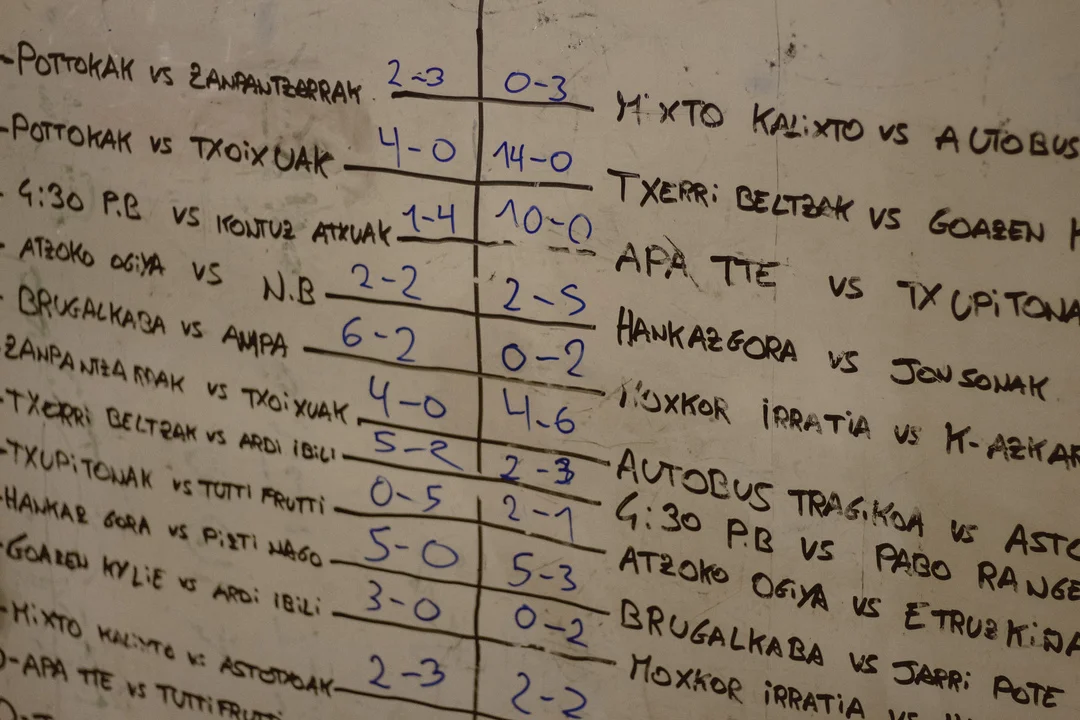 -POTTOKAK VS ZANPANTZARRAK 2-3
-POTTOKAK VS TXOiXUAK 4-0
4:30 P.B VS KONTUZ ATXUAK 1-4
- ATZOKO OGiYA VS N.B 2-2
- BRUGALKABA VS AMPA 6-2
ZANPANTZARRAK VS TXOiXUAK 4-0
-TXERRi BELTZAK VS ARDi iBiLi 5-2
-TXUPiTONAK VS TUTTi FRUTTi 0-5
-HANKAZ GORA VS PiZTi NAGO 5-0
-GOAZEN KYLiE VS ARDi iBiLi 3-0
-MiXTO KALiXTO VS ASTOPOAK 2-3
-APA TTE VS TUTTi FRUTTi
0-3 MiXTO KALiXTO VS AUTOBUS
14-0 TXERRi BELTZAK VS GOAZEN
10-0 APA TTE VS TXUPiTONA
2-5 HANKAZ GORA VS JONSONAK
0-2 MOXKOR iRRATiA VS K-AZKAR
4-6 AUTOBUS TRAGiKOA VS ASTO
2-3 4:30 P.B VS PABO RANGE
2-1 ATZOKO OGiYA VS ETRUZKiNA
5-3 BRUGALKABA VS JARRi POTE
0-2 MOXKOR iRRATiA VS
2-2